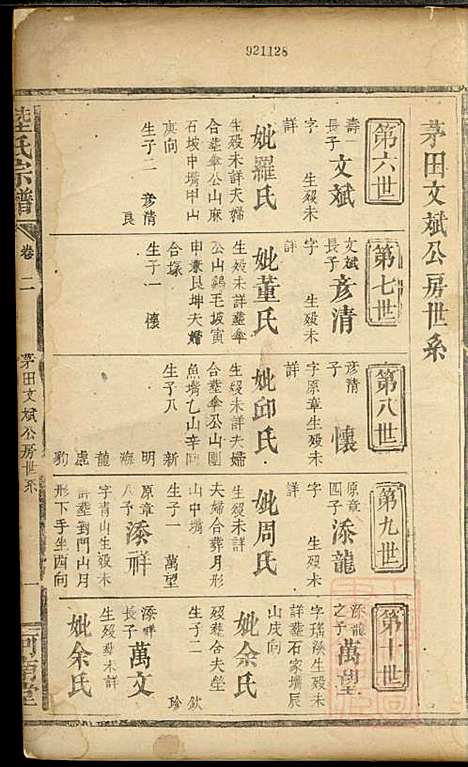 921128
茅田文斌公房世系
第六世
壽一長子 文斌
字 生殁未詳
妣羅氏
生殁未詳夫婦
合塟傘公山麻
石坡中墈甲山
庚向
生子二 彦清
良
第七世
文斌長子 彦清
字 生殁未詳
妣董氏
生殁未詳塟傘
公山鷄毛坡寅
申兼艮坤夫婦
合塜
生子一 懷
第八世
彦清子 懷
字原章生殁未詳
妣邱氏
生殁未詳夫婦
合塟傘公山團
魚嘴乙山辛向
生子八 新
明
海
龍
虎
豹
第九世
原章四子 添龍
字 生殁未詳
妣周氏
生殁未詳
夫婦合葬月形
山中墈
生子一 萬望
原章八子 添祥
字青山生殁未
詳塟對門山月
形下手坐酉向
第十世
添龍之子 萬望
字瑤溪生殁未
詳塟石家墈辰
山戌向
妣余氏
殁塟合夫塋
生子二 欽
珍
添祥長子 萬文
生殁未詳
妣余氏
生殁塟未詳
陸氏宗譜
卷二
茅田文斌公房世系
一
河南堂